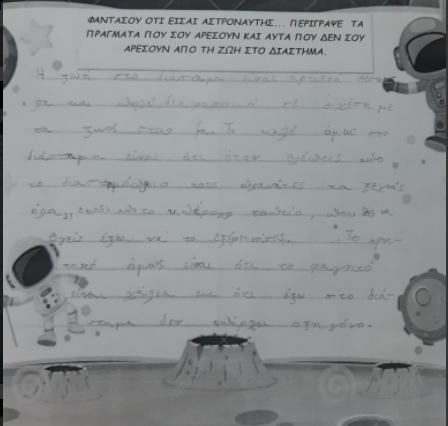 ΦΑΝΤΑΣΟΥ ΟΤΙ ΕΙΣΑΙ ΑΣΤΡΟΝΑΥΤΗΣ... ΠΕΡΙΓΡΑΨΕ ΤΑ
ΠΡΑΓΜΑΤΑ ΠΟΥ ΣΟΥ ΑΡΕΣΟΥΝ ΚΑΙ ΑΥΤΑ ΠΟΥ ΔΕΝ ΣΟΥ
ΑΡΕΣΟΥΝ ΑΠΟ ΤΗ ΖΩΗ ΣΤΟ ΔΙΑΣΤΗΜΑ.
Η ζωή στο διάστημα είναι
και πολύ διαφορετική σε σχέση με
τη ζωή στην Γη. Το καλό όμως στο
διάστημα είναι ότι όταν από
το διαστημόπλοιο τους πλανήτες τα ξεχνάς
όλα, εκτός από το
βγεις έξω να το εξερευνήσεις. Το αρνη-
τικό όμως είναι ότι το φαγητό
είναι χάλια και ότι έξω στο διά-
στημα δεν υπάρχει οξυγόνο.